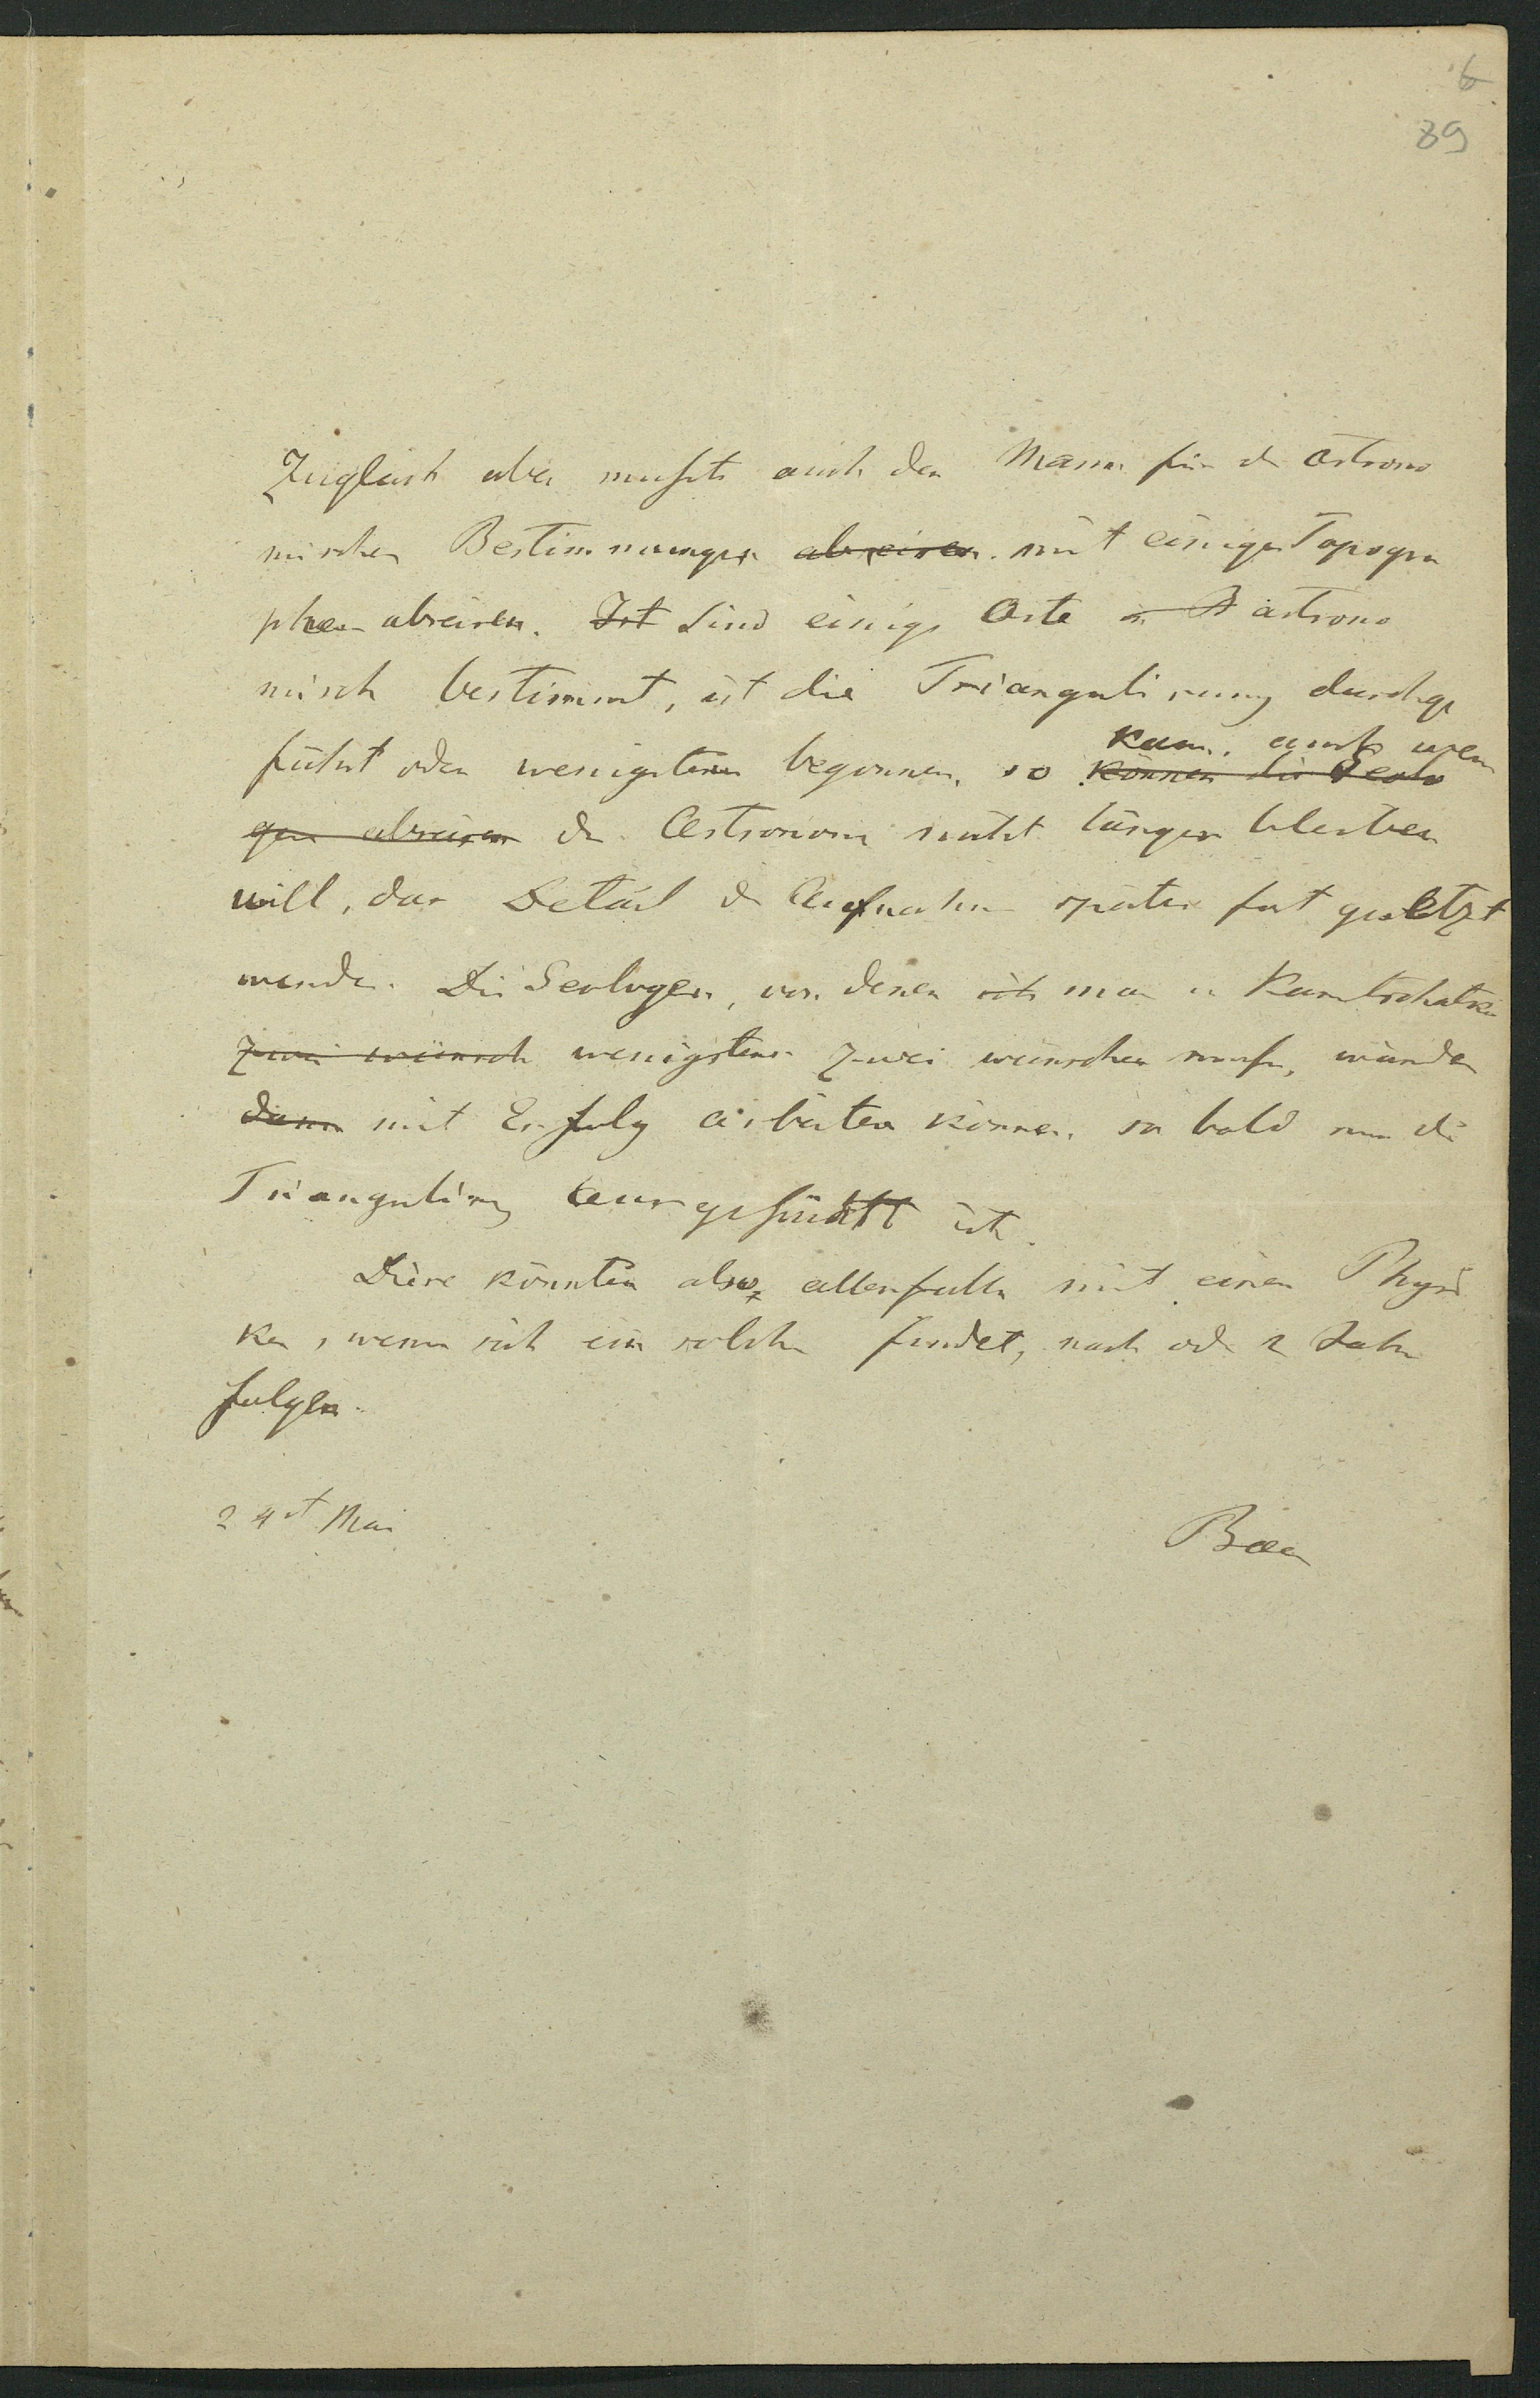 6
89
Zugleich aber musste auch der Mann für die astrono
mischen Bestimmungen abreisen mit einigen Topogra
phen abreisen. Ist Sind einige Orte astrono
misch bestimmt, ist die Triangulirung durchge
führt oder wenigstens begonnen, so können die Geolo
kann, auch wenn
gen abreisen der Astronom nicht länger bleiben
will, das Detail der Aufnahme später fort gesetzt
werden. Die Geologen, von denen ich man in Kamtschatka
zwei wünsch wenigstens zwei wünschen muss, würden
dann mit Erfolg arbeiten können, so bald nur die
Triangulirung ausgeführt ist.
Diese könnten also allenfalls mit einem Physi
ker, wenn sich ein solcher findet, nach oder 2 Jahr
folgen.
24st Mai
Baer